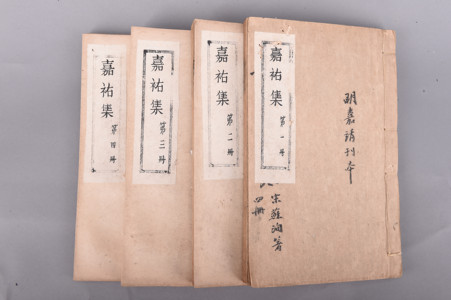 嘉祐集
第一冊
明嘉靖刊本
宋蘇洵著
四冊
嘉祐集
第二冊
嘉祐集
第三冊
嘉祐集
第四冊